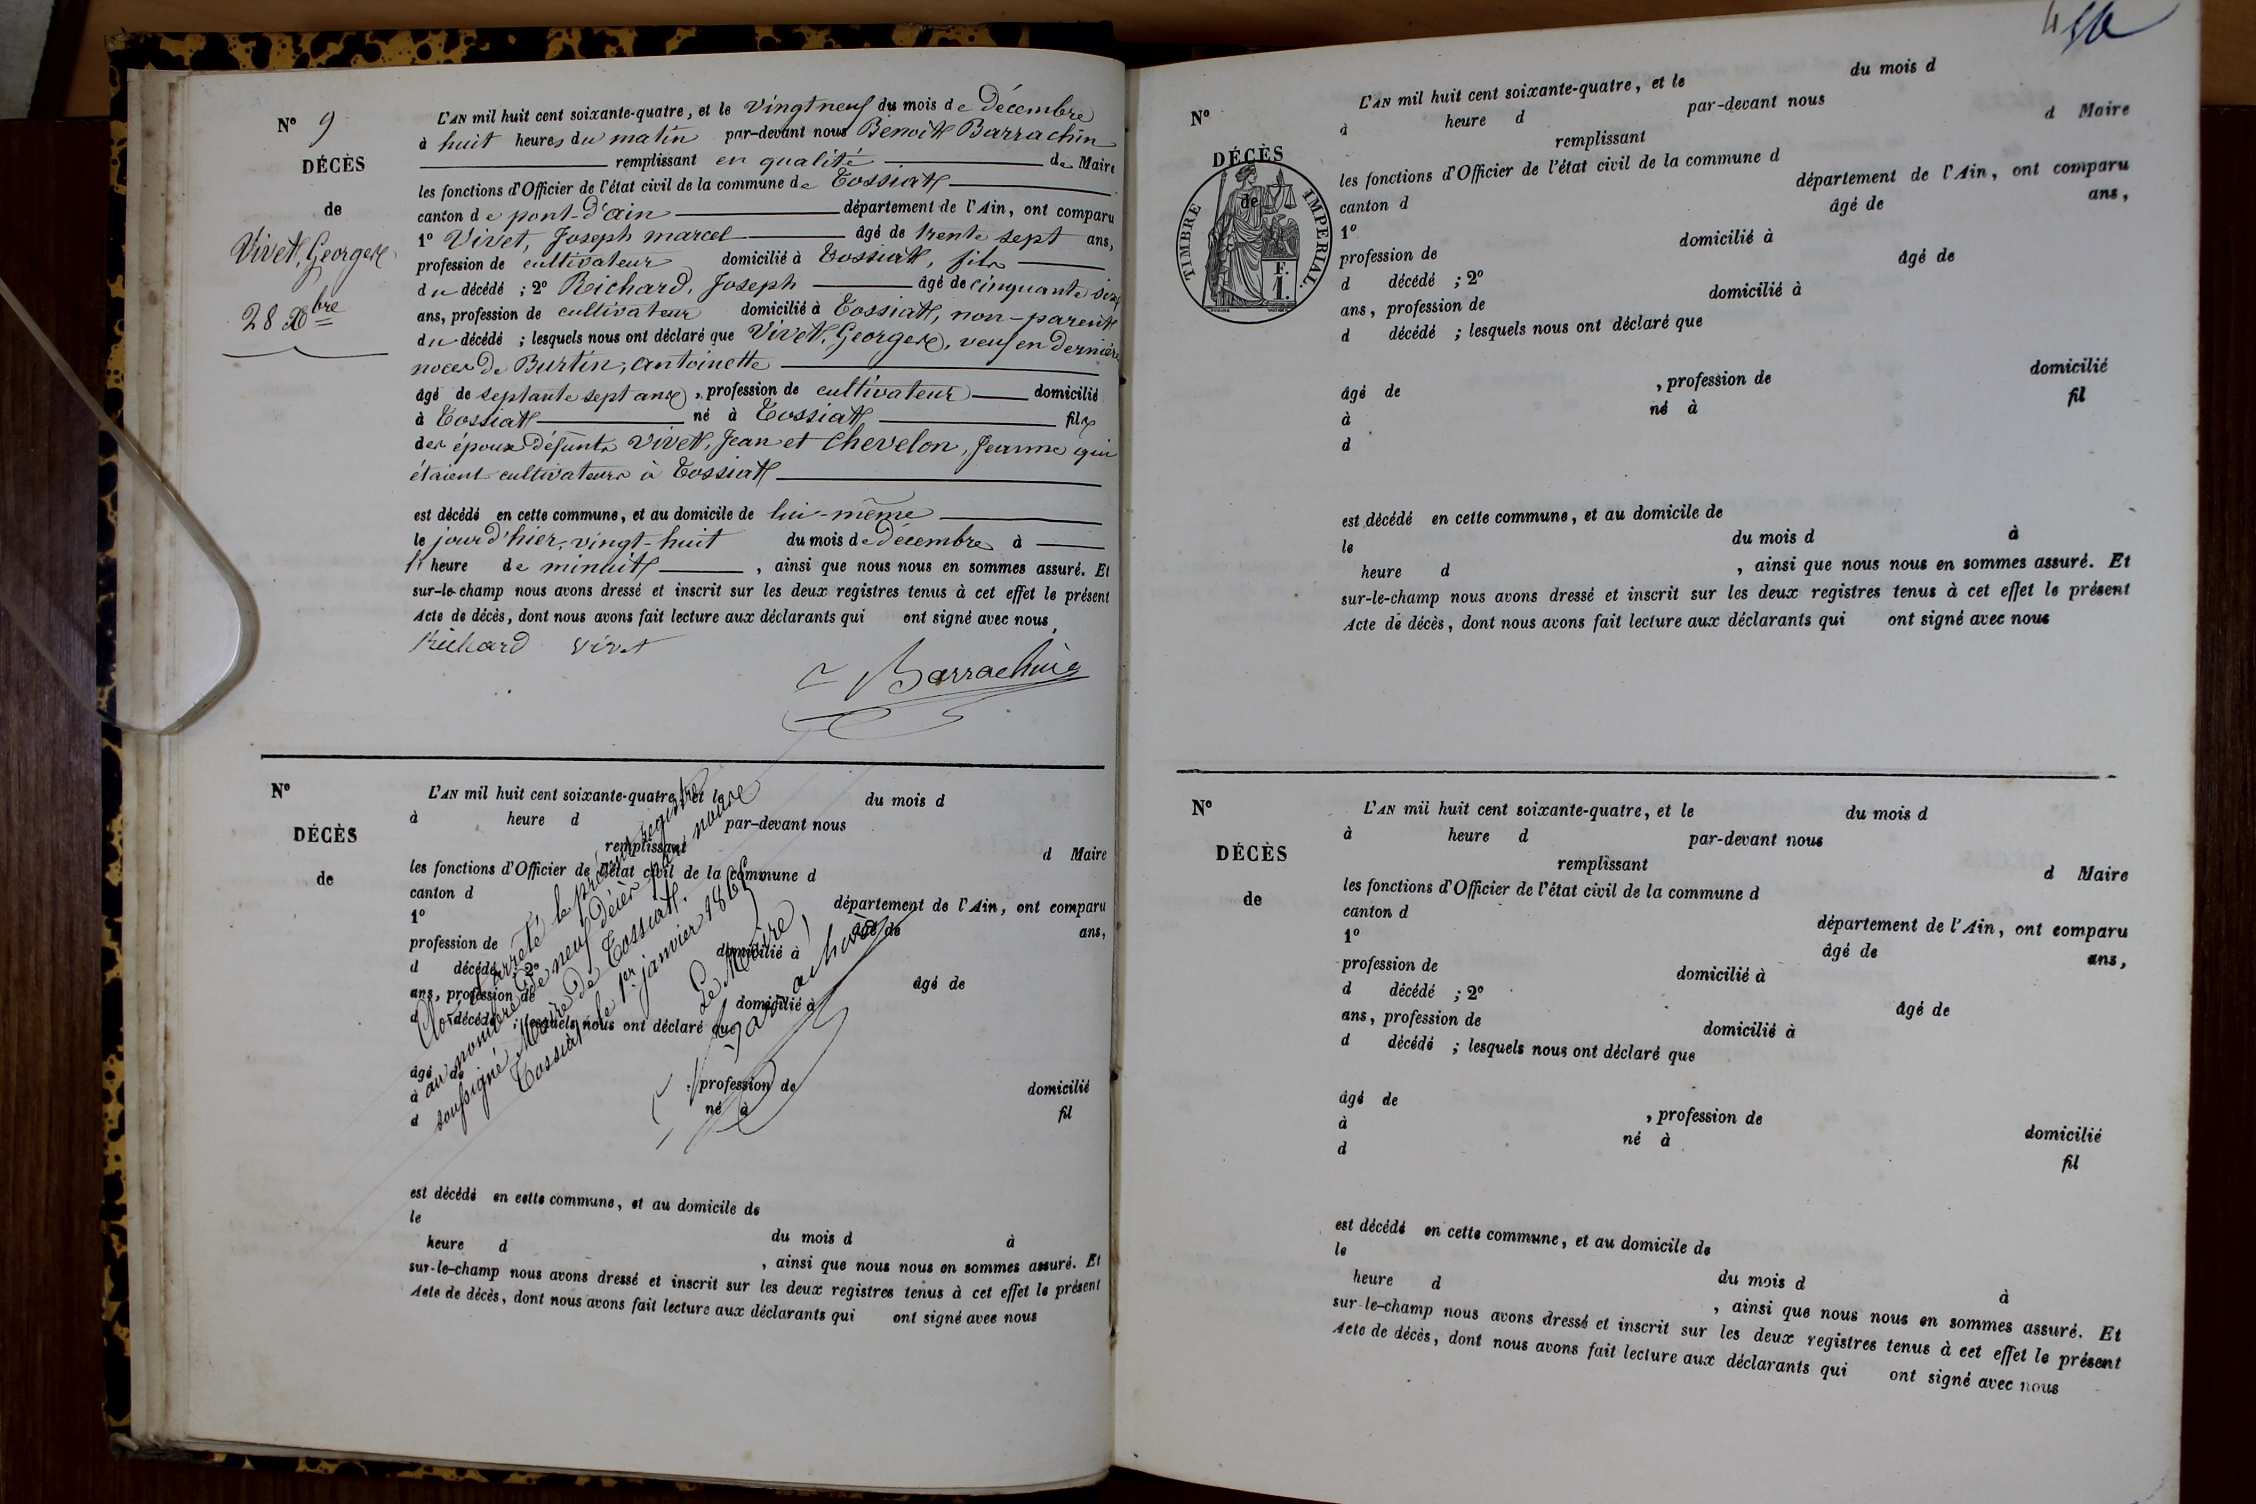 N° 9
DÉCÈS
de
Vivet, George
28 Xbre
L'AN mil huit cent soixante-quatre, et le vingt neuf du mois de Décembre
à huit heures du matin par-devant nous Benoit Barrachin
remplissant en qualité de Maire
les fonctions d'Officier de l'état civil de la commune de Tossiat
canton de pont-d'ain département de l'Ain, ont comparu
1° Vivet, Joseph marcel âgé de trente sept ans,
profession de cultivateur domicilié à Tossiat, fils
du décédé ; 2° Richard, Joseph âgé de cinquante six
ans, profession de cultivateur domicilié à Tossiat, non-parent
du décédé ; lesquels nous ont déclaré que Vivet, George, veuf en dernières
noces de Burtin, antoinette
âgé de septante sept ans, profession de cultivateur domicilié
à Tossiat né à Tossiat fils
des époux défunts Vivet, Jean et Chevelon, Jeanne qui
étaient cultivateurs à Tossiat
est décédé en cette commune, et au domicile de lui-même
le jour d'hier, vingt-huit du mois de Décembre à
l' heure de minuit, ainsi que nous nous en sommes assuré. Et
sur-le-champ nous avons dressé et inscrit sur les deux registres tenus à cet effet le présent
Acte de décès, dont nous avons fait lecture aux déclarants qui ont signé avec nous,
Richard Vivet
Barrachin
N°
DÉCÈS
de
L'AN mil huit cent soixante-quatre, et le du mois d
à heure d par-devant nous
remplissant d Maire
les fonctions d'Officier de l'état civil de la commune d
canton d département de l'Ain, ont comparu
1° âgé de ans,
profession de domicilié à
d décédé ; 2° âgé de
ans, profession de domicilié à
d décédé ; lesquels nous ont déclaré que
âgé de , profession de domicilié
à né à fil
d
Clos & arrêté le présent registre
au nombre de neuf décès par nous
soussigné Maire de Tossiat.
Tossiat le 1er janvier 1865
Le Maire,
Barrachin
est décédé en cette commune, et au domicile de
le du mois d à
heure d , ainsi que nous nous en sommes assuré. Et
sur-le-champ nous avons dressé et inscrit sur les deux registres tenus à cet effet le présent
Acte de décès, dont nous avons fait lecture aux déclarants qui ont signé avec nous
N°
DÉCÈS
de
TIMBRE IMPERIAL.
F.
1.
L'AN mil huit cent soixante-quatre, et le du mois d
à heure d par-devant nous
remplissant d Maire
les fonctions d'Officier de l'état civil de la commune d
canton d département de l'Ain, ont comparu
1° âgé de ans,
profession de domicilié à
d décédé ; 2° âgé de
ans, profession de domicilié à
d décédé ; lesquels nous ont déclaré que
âgé de , profession de domicilié
à né à fil
d
est décédé en cette commune, et au domicile de
le du mois d à
heure d , ainsi que nous nous en sommes assuré. Et
sur-le-champ nous avons dressé et inscrit sur les deux registres tenus à cet effet le présent
Acte de décès, dont nous avons fait lecture aux déclarants qui ont signé avec nous
N°
DÉCÈS
de
L'AN mil huit cent soixante-quatre, et le du mois d
à heure d par-devant nous
remplissant d Maire
les fonctions d'Officier de l'état civil de la commune d
canton d département de l'Ain, ont comparu
1° âgé de ans,
profession de domicilié à
d décédé ; 2° âgé de
ans, profession de domicilié à
d décédé ; lesquels nous ont déclaré que
âgé de , profession de domicilié
à né à fil
d
est décédé en cette commune, et au domicile de
le du mois d à
heure d , ainsi que nous nous en sommes assuré. Et
sur-le-champ nous avons dressé et inscrit sur les deux registres tenus à cet effet le présent
Acte de décès, dont nous avons fait lecture aux déclarants qui ont signé avec nous